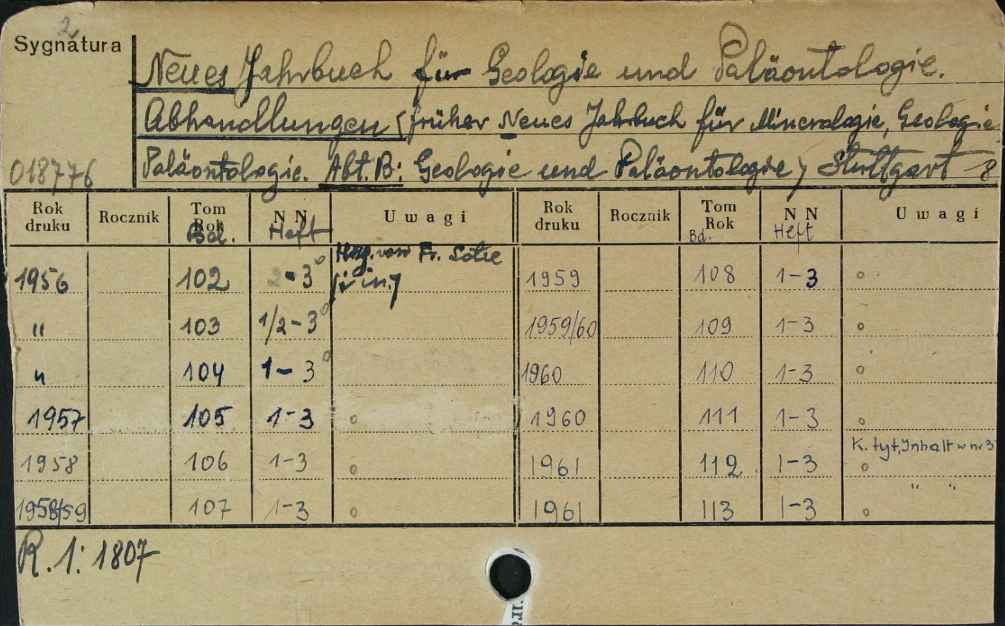 2
Sygnatura
Neues Jahrbuch für Geologie und Paläontologie.
Abhandlungen (früher Neues Jahrbuch für Mineralogie, Geologie
018776 Paläontologie. Abt. B: Geologie und Paläontologie) Stuttgart 8
Rok druku Rocznik Tom Rok Bd. N N Heft Uwagi Rok druku Rocznik Tom Rok Bd. N N Heft Uwagi
Hrsg. von Fr.
1956 102 2-3° 1959 108 1-3 °
" 103 1/2-3° 1959/60 109 1-3 °
" 104 1-3° 1960 110 1-3 °
1957 105 1-3 ° 1960 111 1-3 °
K. tyt, Inhalt w nr 3
1958 106 1-3 ° 1961 112 1-3 °
" "
1958/59 107 1-3 ° 1961 113 1-3 °
R. 1: 1807